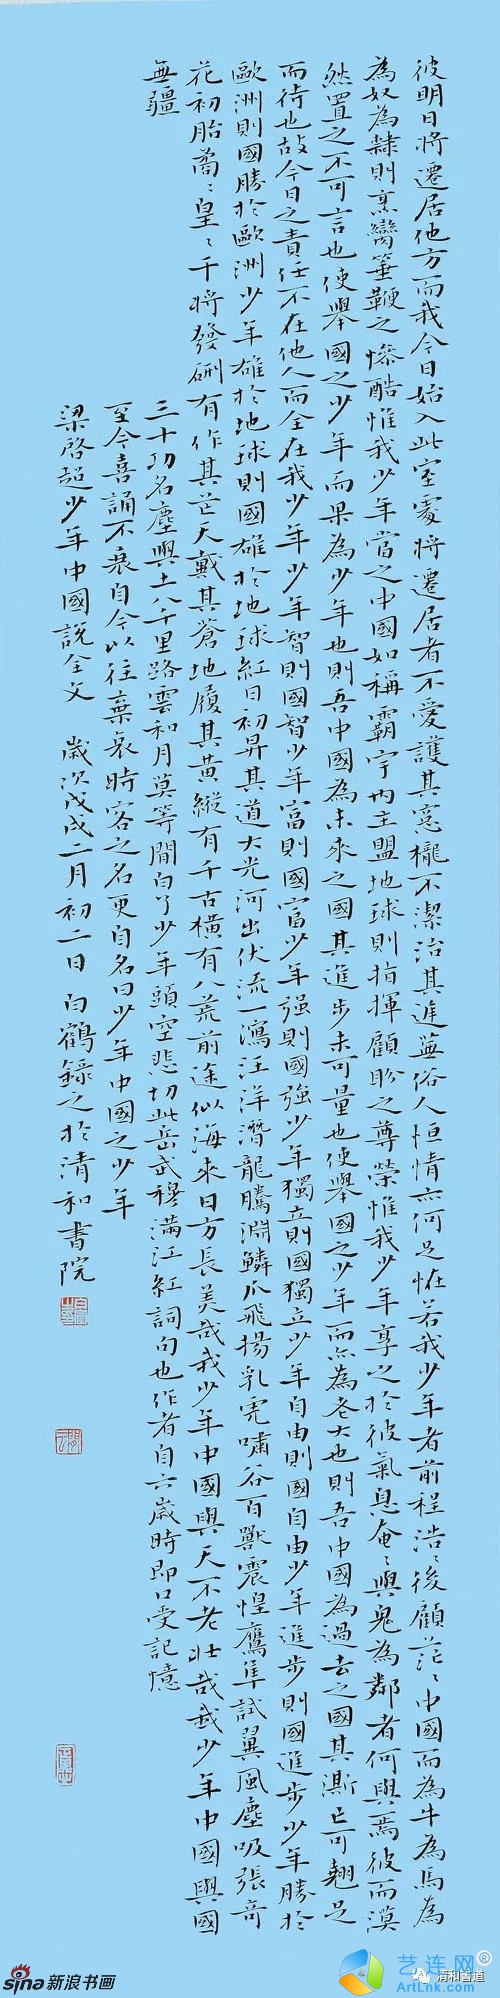 彼明日將遷居他方而我今日始入此室處將遷居者不愛護其窓櫳不潔治其庭蕪俗人恒情亦何足怪若我少年者前程浩〻後顧茫〻中國而為牛為馬為
為奴為隸則烹臠箠鞭之慘酷惟我少年當之中國如稱霸宇內主盟地球則指揮顧盼之尊榮惟我少年享之於彼氣息奄〻與鬼為鄰者何與焉彼而漠
然置之不可言也使舉國之少年而果為少年也則吾中國為未來之國其進步未可量也使舉國之少年而亦為老大也則吾中國為過去之國其澌亡可翹足
而待也故今日之責任不在他人而全在我少年少年智則國智少年富則國富少年强則國强少年獨立則國獨立少年自由則國自由少年進步則國進步少年勝於
歐洲則國勝於歐洲少年雄於地球則國雄於地球紅日初昇其道大光河出伏流一瀉汪洋潛龍騰淵鱗爪飛揚乳虎嘯谷百獸震惶鷹隼試翼風塵吸張奇
花初胎矞〻皇〻干將發硎有作其芒天戴其蒼地履其黃縱有千古橫有八荒前途似海來日方長美哉我少年中國與天不老壯哉我少年中國與國
無疆
三十功名塵與土八千里路雲和月莫等閒白了少年頭空悲切此岳武穆滿江紅詞句也作者自六歲時即口受記憶
至今喜誦不衰自今以往棄哀時客之名更自名曰少年中國之少年
梁啓超少年中國說全文 歲次戊戌二月初二日 白鶴錄之於清和書院
sina新浪书画
清和書道
艺连网®
ArtLnk.com